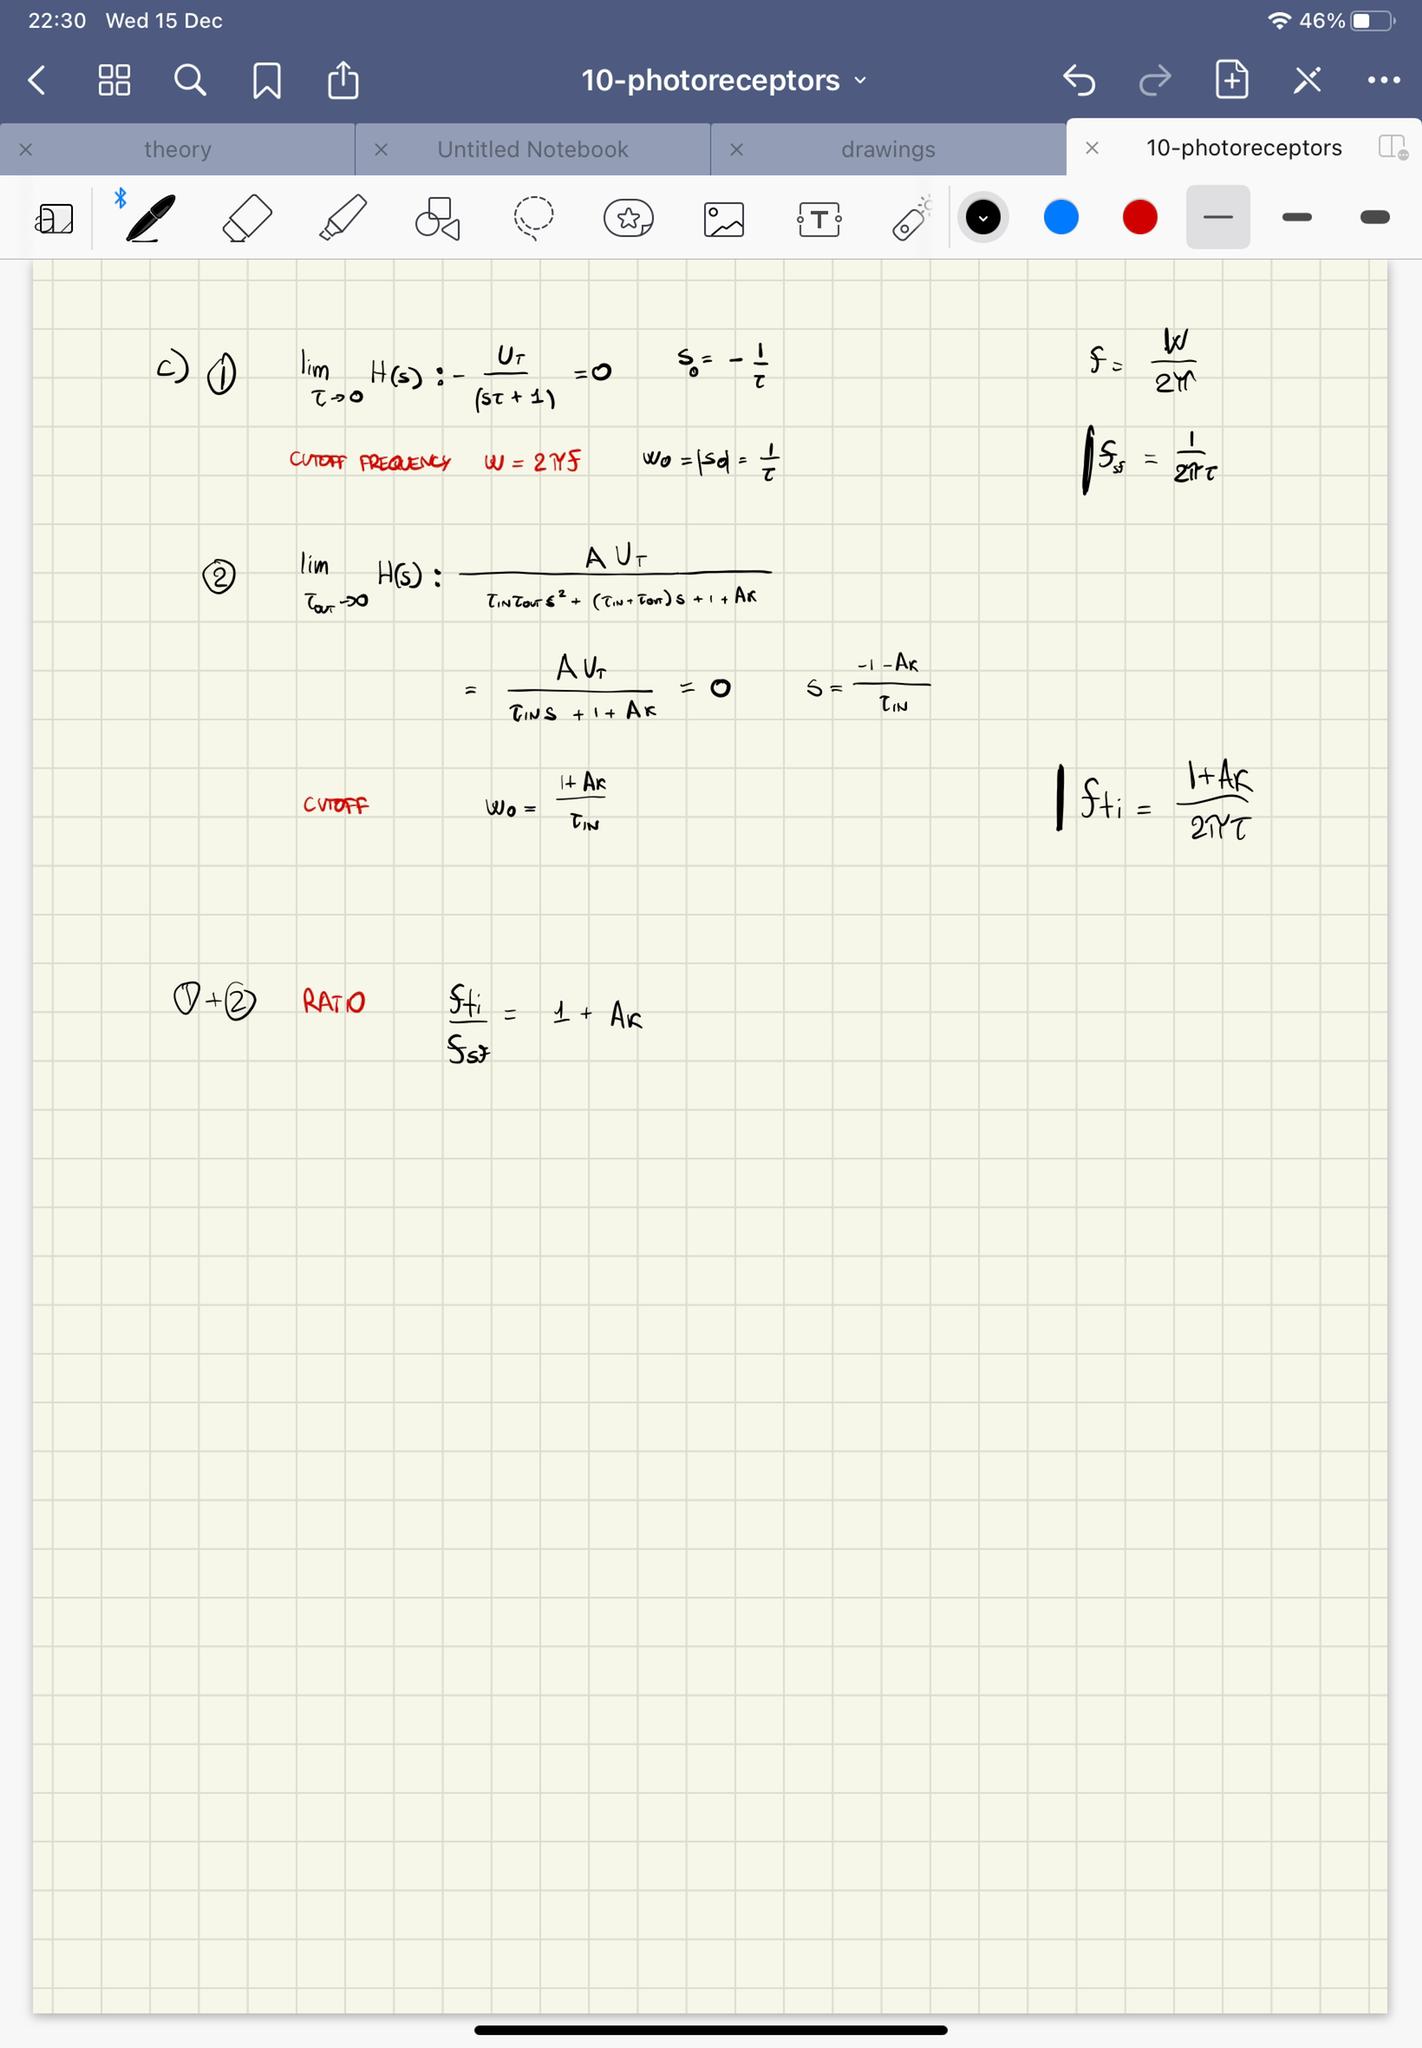 22:30 Wed 15 Dec 46%
10-photoreceptors
theory Untitled Notebook drawings 10-photoreceptors
c) ① lim τ→0 H(s) : - U_T / (sτ + 1) = 0 s₀ = - 1/τ f = W / 2π
CUTOFF FREQUENCY W = 2πf W₀ = |s₀| = 1/τ f_sf = 1 / 2πτ
② lim τ_OUT→0 H(s) : A U_T / τ_IN τ_OUT s² + (τ_IN + τ_OUT) s + 1 + Aκ
= A U_T / τ_IN s + 1 + Aκ = 0 s = -1 - Aκ / τ_IN
CUTOFF W₀ = 1 + Aκ / τ_IN f_ti = 1 + Aκ / 2πτ
① + ② RATIO f_ti / f_sf = 1 + Aκ